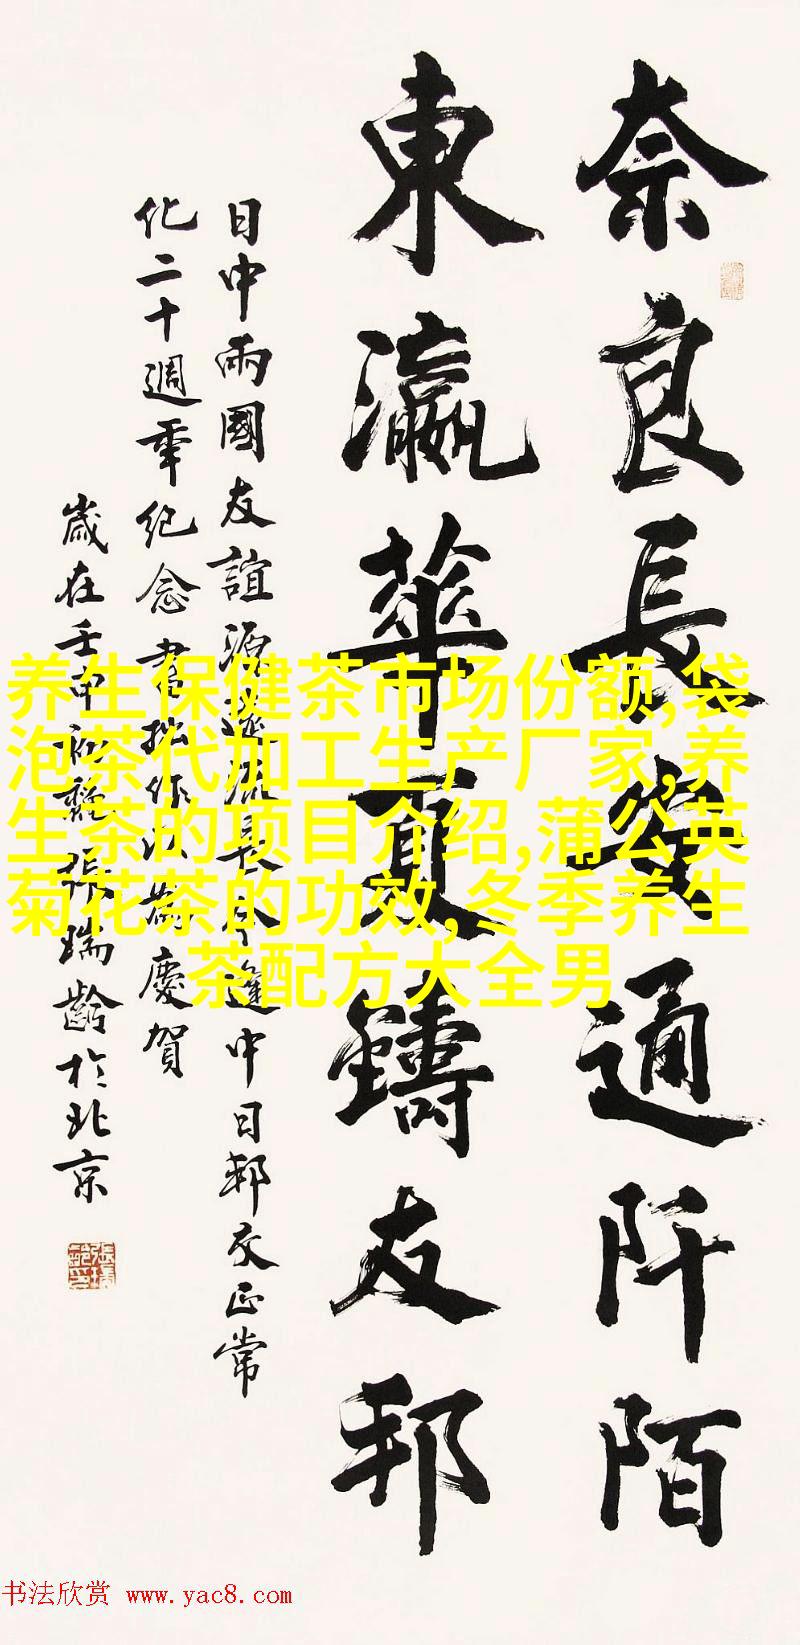 奈良長安通阡陌
東瀛華夏鑄友邦
日中兩國友誼源遠流長今逢中日邦交正常
化二十週年紀念書拙作以為慶賀
歲在壬申初龝張瑞齡於北京
張瑞齡印
养生保健茶市场份额,袋
泡茶代加工生产厂家,养
生茶的项目介绍,蒲公英
菊花茶的功效,冬季养生
茶配方大全男
书法欣赏 www.yac8.com